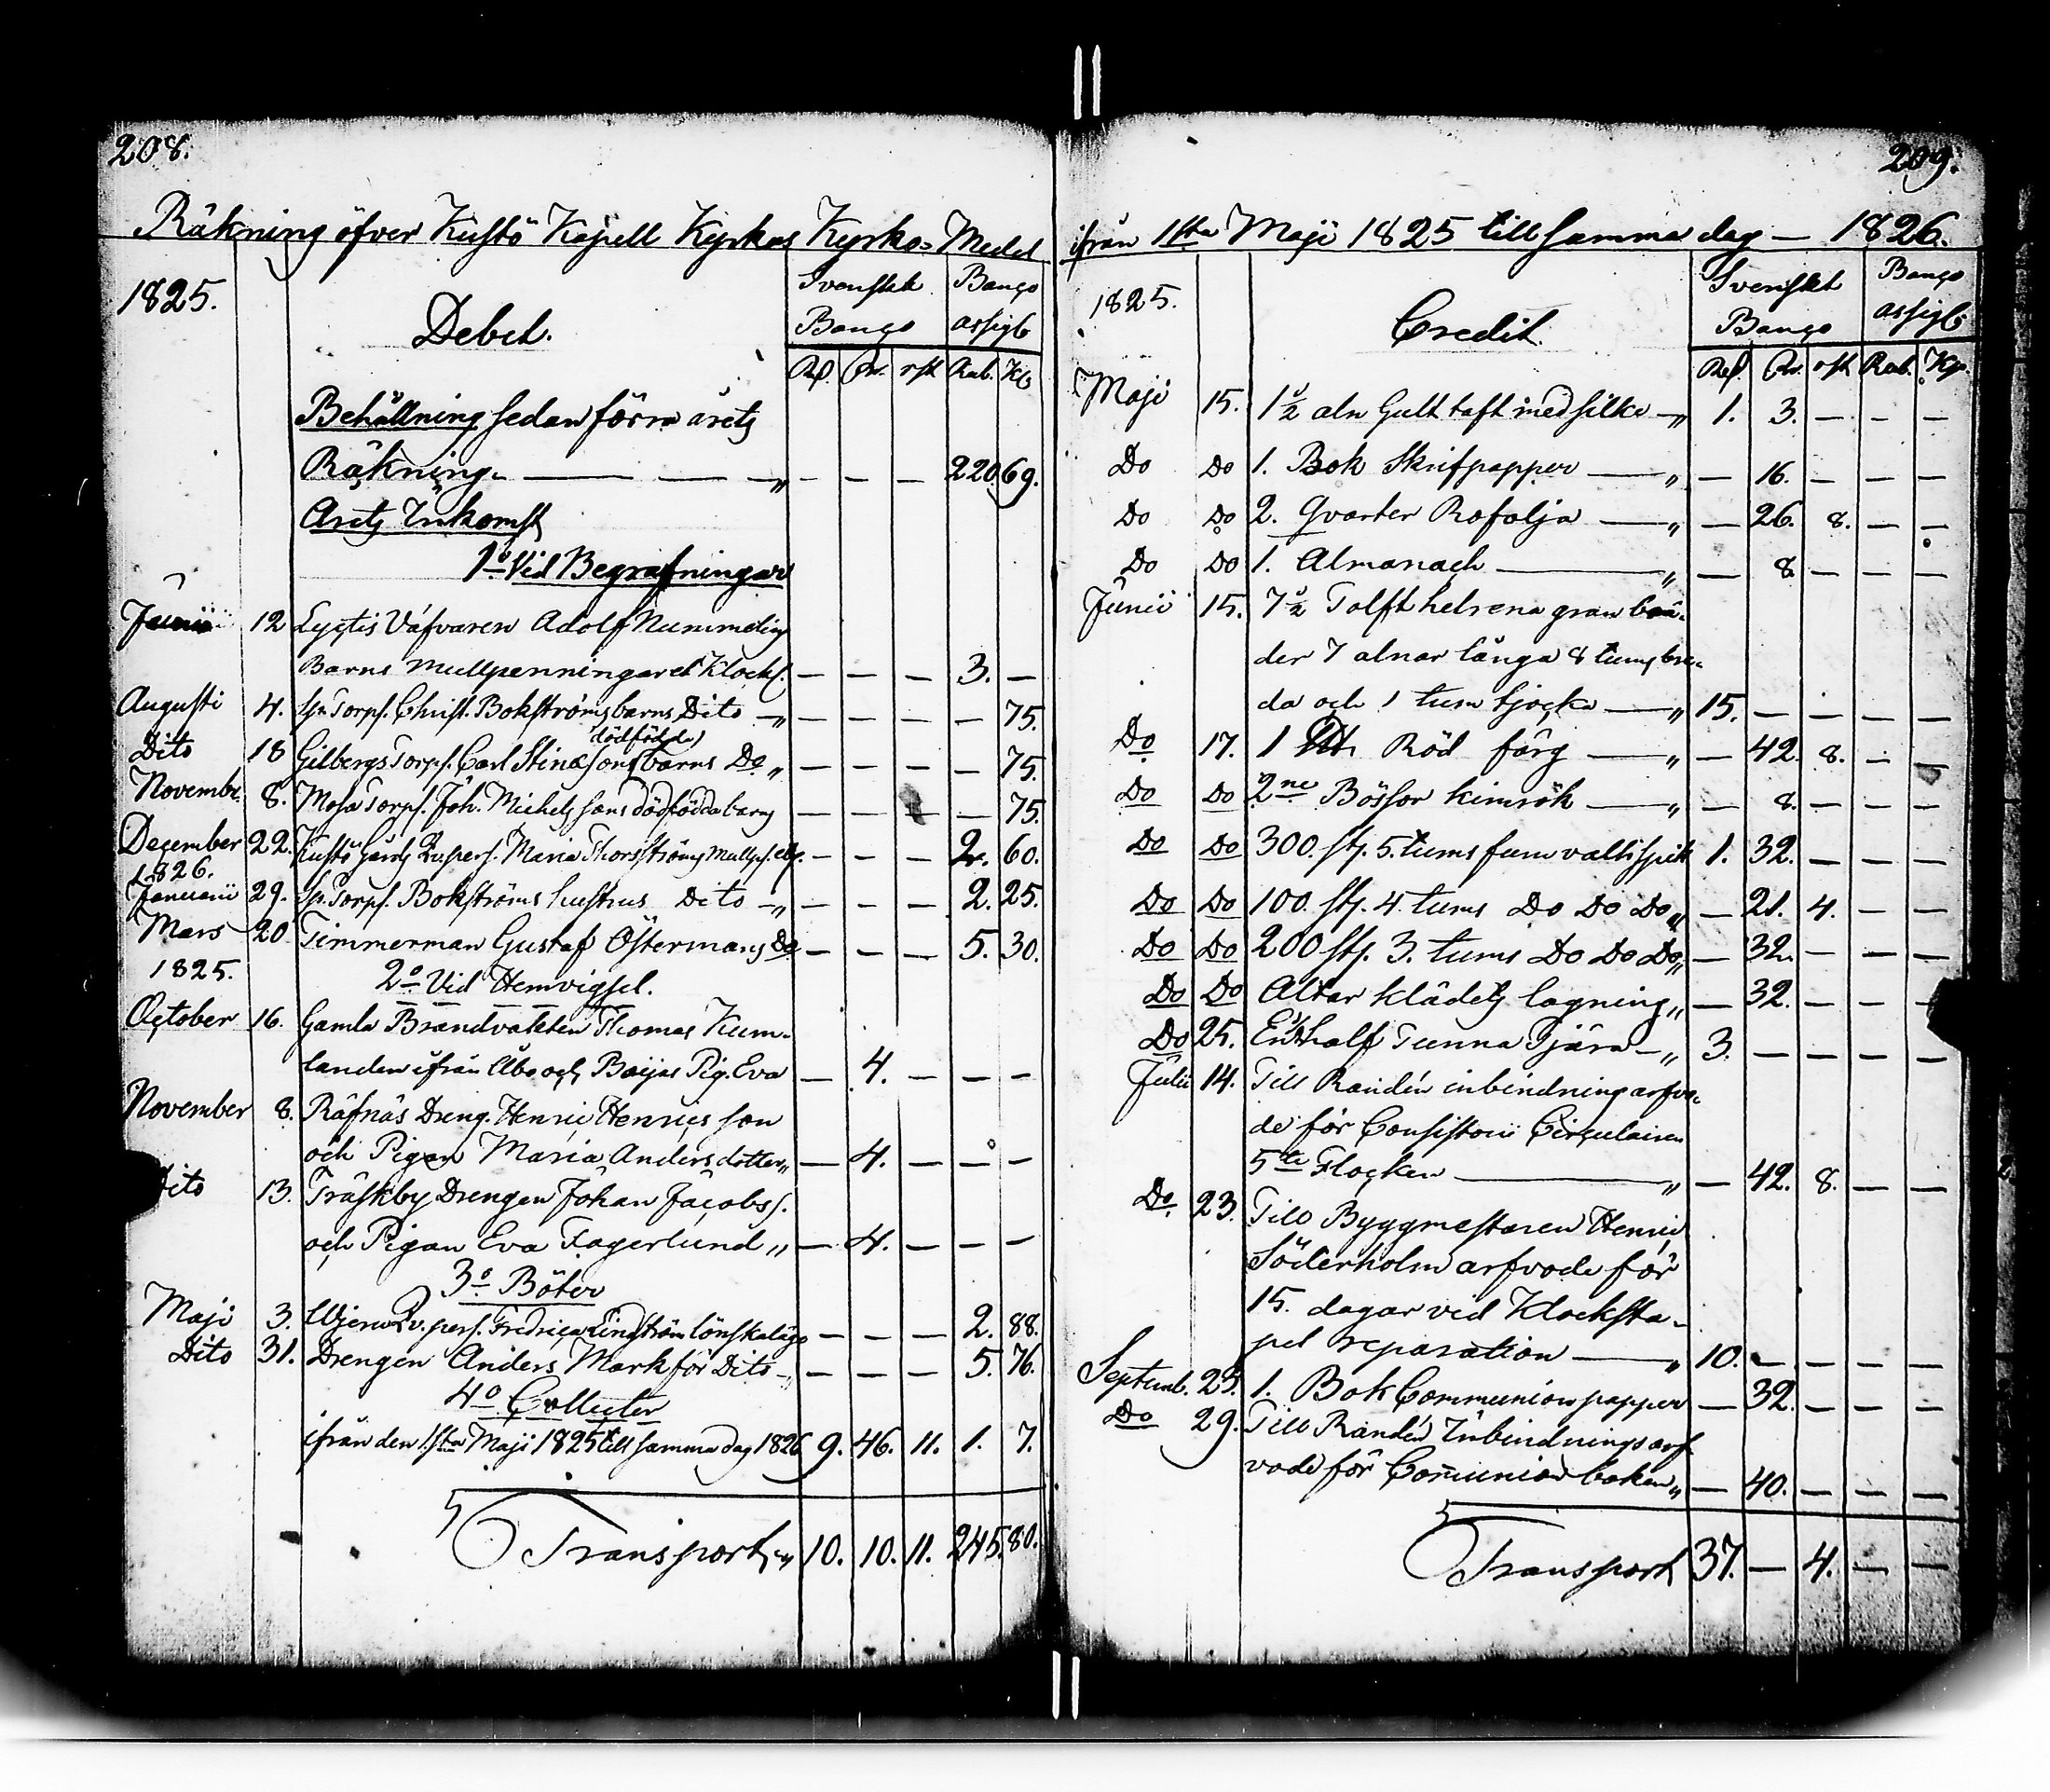 208.
Räkning öfver Kustö Kapell Kyrkas Kyrko-Medel
1825.
Debet.
Svenskt Banco
Banco assigl
Rd. Sk. rst Rub. Kb
Behållning sedan förra årets
Räkning. — — — „ — — — 220. 69.
Årets Inkomst
1o Vid Begrafningar
Junii 12 Lyctis Väfvaren Adolf Nummelins
Barns Mullpenningar et Klock. — — — 3. —
Augusti 4. Torp. Christ. Bokströms barns Dito „ — — — — 75.
dödfödda
Dito 18 Gilbergs Torp. Carl Stinas sons barns Do „ — — — — 75.
Novembr. 8. Mosa Torp. Joh. Michels sons dödfödda barns — — — — 75.
December 22. Kustö Gårds Qv.pers. Maria Thorsströms Mullp. — — — 2. 60.
1826.
Januarii 29. Torp. Bokströms hustrus Dito „ — — — 2. 25.
Mars 20 Timmerman Gustaf Östermans Do — — — 5. 30.
1825.
2o Vid Hemvigsel.
October 16. Gamla Brandvakten Thomas Kum-
landen ifrån Åbo och Boijas Pig. Eva — 4. — — —
November 8. Räfnäs Dreng. Henric Henrics son
och Pigan Maria Anders dotter „ — 4. — — —
Dito 13. Träskby Drengen Johan Jacobs s.
och Pigan Eva Fagerlund „ — 4. — — —
3o Böter
Maji 3. Qv. pers. Fredrica Lindström lönskaläge — — — 2. 88.
Dito 31. Drengen Anders Mark för Dito „ — — — 5. 76.
4o Collecter
ifrån den 1sta Maji 1825 till samma dag 1826 9. 46. 11. 1. 7.
Transport „ 10. 10. 11. 245. 80.
209.
ifrån 1sta Maji 1825 till samma dag — 1826.
1825.
Credit.
Svenskt Banco
Banco assigl
Rd. Sk. rst Rub. Kp.
Maji 15. 1 1/2 aln Gult taft med silke — „ 1. 3. — — —
Do Do 1. Bok Skrifpapper — „ — 16. — — —
Do Do 2. Qvarter Rofolja — „ — 26. 8. — —
Do Do 1. Almanach — „ — 8. — — —
Junii 15. 7 1/2 Tolft helrena gran brä-
der 7 alnar långa 8 tums bre-
da och 1 tum tjocka — „ 15. — — — —
Do 17. 1 Röd färg — „ — 42. 8. — —
Do Do 2ne Bössor kimrök — „ — 8. — — —
Do Do 300. st. 5. tums spik 1. 32. — — —
Do Do 100. st. 4 tums Do Do Do „ — 21. 4. — —
Do Do 200 st. 3. tums Do Do Do „ — 32. — — —
Do Do Altar klädets lagning „ — 32. — — —
Do 25. En half Tunna Tjära — „ 3. — — — —
Julii 14. Till Randén inbindning arfvo-
de för Consistorii Circulairen
5te Flocken — „ — 42. 8. — —
Do 23. Till Byggmestaren Henric
Söderholm arfvode för
15. dagar ved Klocksta-
pel reparation — „ 10. — — — —
Septemb. 23. 1. Bok Communion papper — 32. — — —
Do 29. Till Randén Inbindnings arf
vode för Com̄union boken „ — 40. — — —
Transport 37. — 4. — —